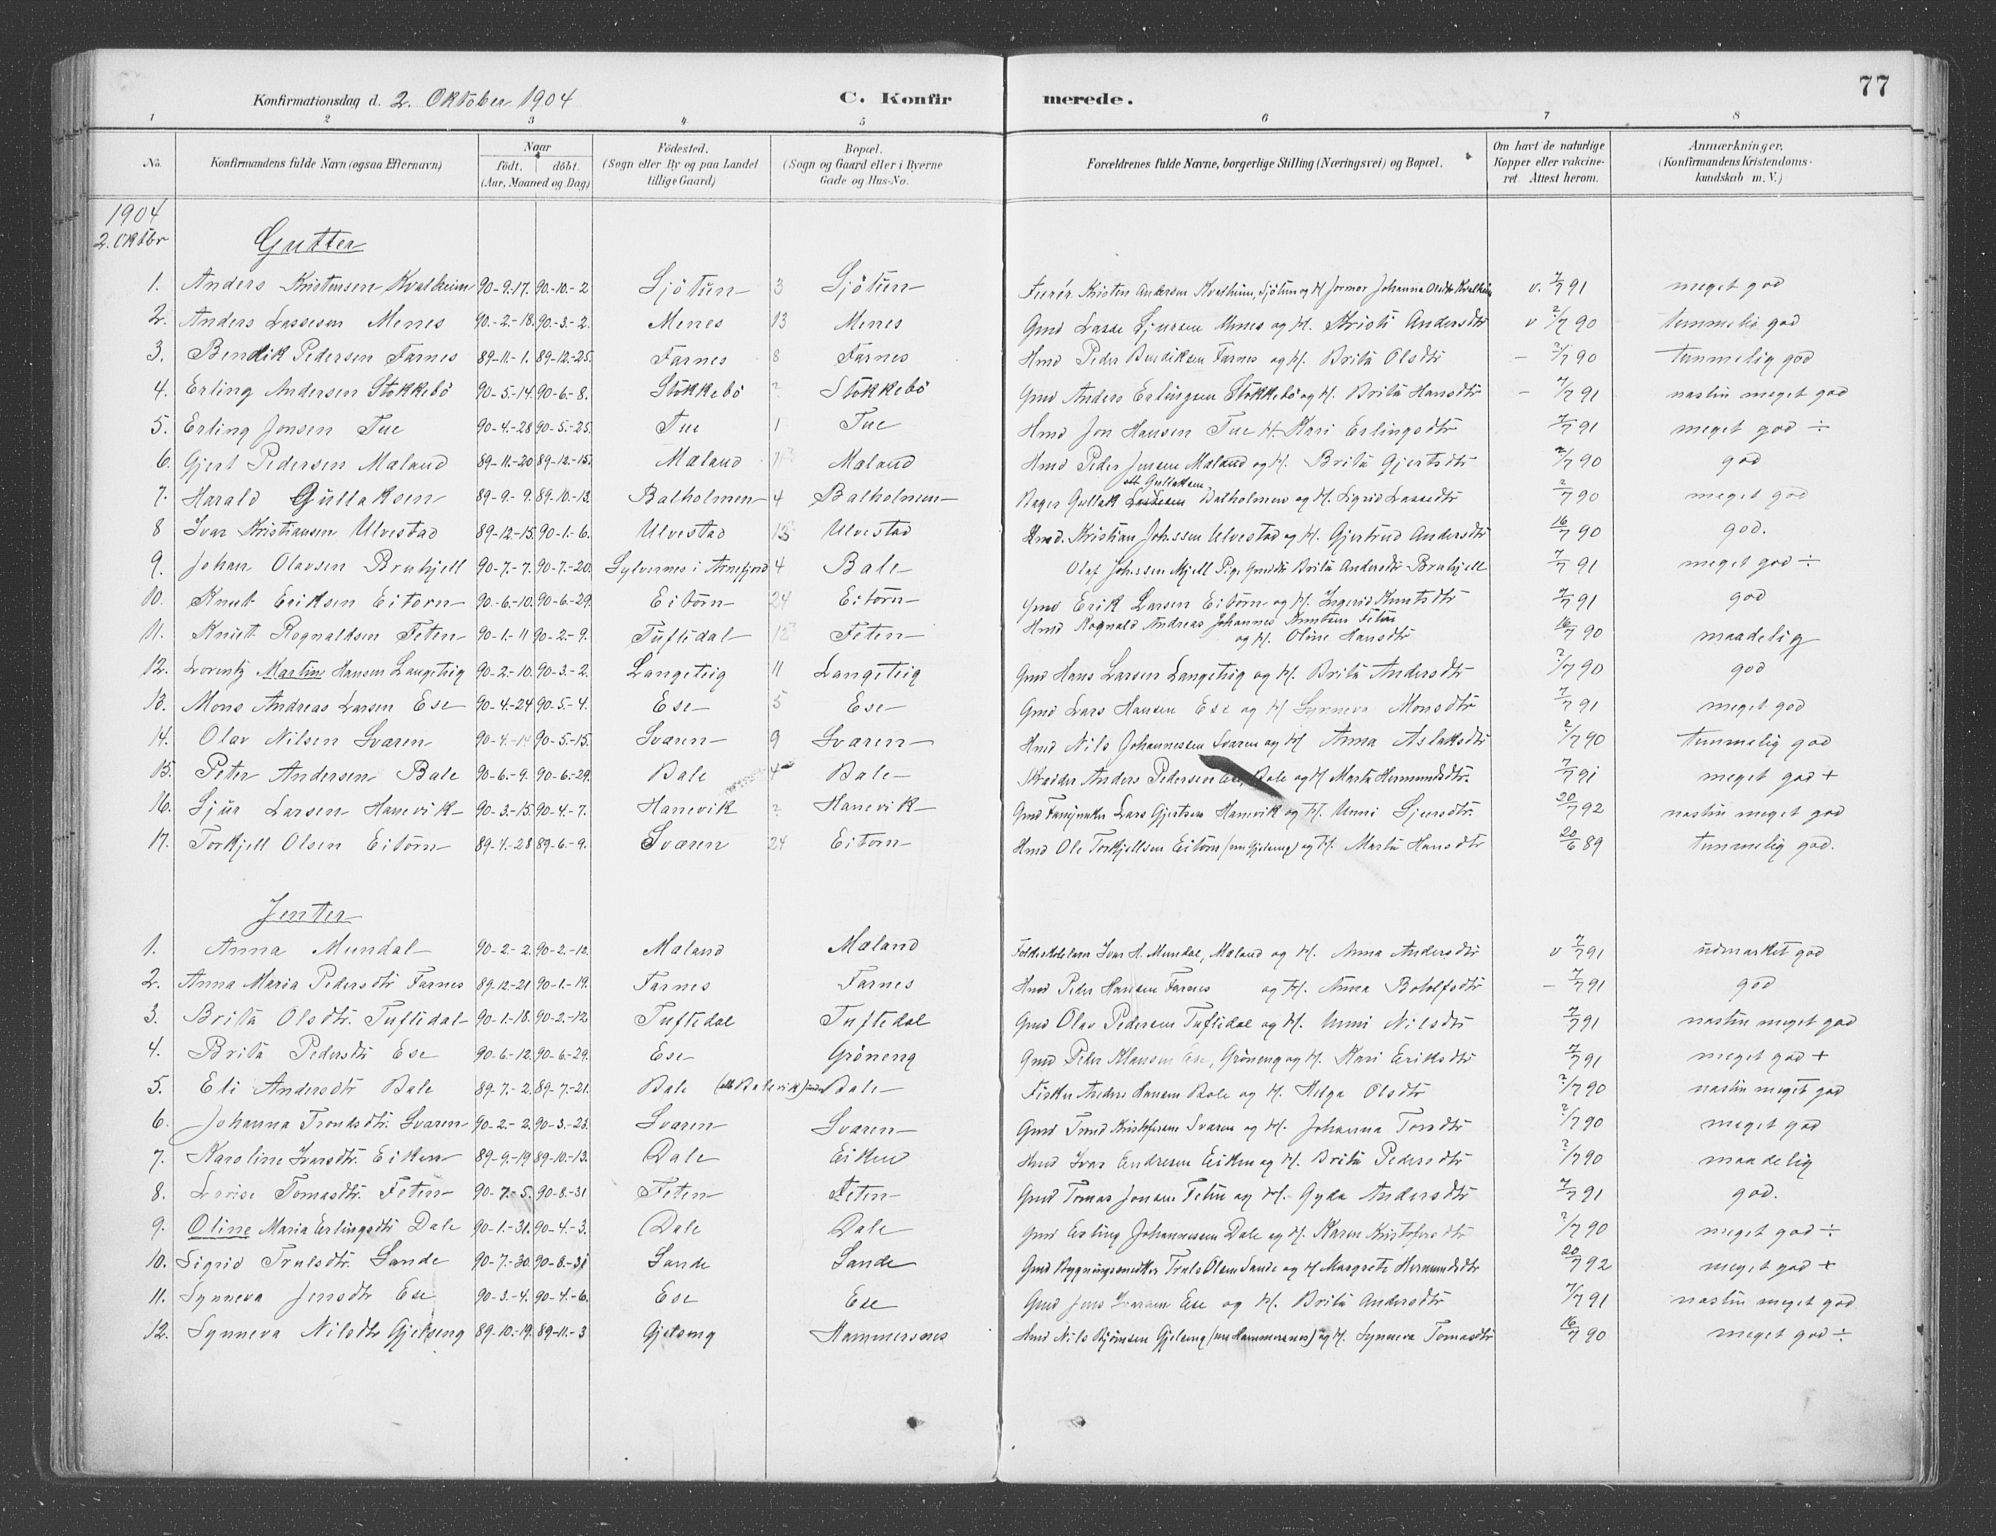 77
Konfirmationsdag d. 2. Oktober 1904 C. Konfirmerede.
1 2 3 4 5 6 7 8
No. Konfirmandens fulde Navn (ogsaa Efternavn) Naar født. døbt. (Aar, Maaned og Dag) Fødested. (Sogn eller By og paa Landet tillige Gaard) Bopæl. (Sogn og Gaard eller i Byerne Gade og Hus-No. Forældrenes fulde Navne, borgerlige Stilling (Næringsvei) og Bopæl. Om havt de naturlige Kopper eller vakcineret. Attest herom. Anmærkninger, (Konfirmandens Kristendomskundskab m. V.)
1904
2. Oktbr
Gutter
1. Anders Kristensen Kvalheim 90-9-17. 90-10-2 Sjötun 3 Sjötun Kristen Andersen Kvalheim, Sjötun og H. Johanna v. 7/7 91 meget god
2. Anders Lassesen Menes 90-2-18. 90-3-2. Menes 13 Menes Gmd Lasse Sjursen Menes og H. Kristi Andersdtr v 2/7 90 temmelig god
3. Bendik Pedersen Farnes 89-11-1. 89-12-25. Farnes 8 Farnes Hmd Peder Bendiksen Farnes og H. Brita Olsdtr - 2/7 90 temmelig god
4. Erling Andersen Stokkebö 90-5-14. 90-6-8. Stokkebö 2 Stokkebö Gmd Anders Erlingsen Stokkebö og H. Brita Hansdtr - 7/7 91 næsten meget god
5. Erling Jonsen Tue 90-4-28 90-5-25. Tue 1 Tue Hmd Jon Hansen Tue H. Kari Erlingsdtr 7/7 91 meget god ÷
6. Gjert Pedersen Mæland 89-11-20 89-12-15. Mæland Mæland Hmd Peder Jensen Mæland og H. Brita Gjertsdtr 2/7 90 god
7. Harald Gullaksen 89-9-9. 89-10-13. Balholmen 4 Balholmen Bager Gullak Lassesen Balholmen og H. Sigrid Lassedtr 2/7 90 meget god
8 Ivar Kristiansen Ulvestad 89-12-15. 90-1-6. Ulvestad 13 Ulvestad Hmd. Kristian Johssen Ulvestad og H. Gjertrud Andersdtr 16/7 90 god.
9. Johan Olavsen Bruhjell 90-7-7. 90-7-20. Sylvernes i Arnefjord 4 Bale Olaf Johssen Mjell Pige Brita Andersdtr Bruhjell 7/7 91 meget god ÷
10. Knut Eriksen Eitorn 90-6-10. 90-6-29. Eitorn 24 Eitorn Gmd Erik Larsen Eitorn og H. Ingerid Knutsdtr 7/7 91 god
11. Knut Rognaldsen Feten 90-1-11 90-2-9. Tuftedal 12 Feten Hmd Rognald Andreas Johannes Knutsen Feten og H. Oline Hansdtr 16/7 90 maadelig
12. Lorentz Martin Hansen Langeteig 90-2-10. 90-3-2. Langeteig 11 Langeteig Gmd Hans Larsen Langeteig og H. Brita Andersdtr 2/7 90 god
13. Mons Andreas Larsen Ese 90-4-24 90-5-4. Ese 5 Ese Gmd Lars Hansen Ese og H Synneva Monsdtr 7/7 91 meget god
14. Olav Nilsen Sværen 90-4-14 90-5-15. Sværen 9 Sværen Hmd Nils Johannessen Sværen og H Anna Aslaksdtr 2/7 90 temmelig god
15. Peter Andersen Bale 90-6-9. 90-6-29. Bale 4 Bale Skræder Anders Pedersen Bale og H Marta Hermundsdtr. 7/7 91 meget god +
16. Sjur Larsen Hanevik 90-3-15. 90-4-7. Hanevik 2 Hanevik Gmd Lars Gjertsen Hanevik og H. Unni Sjursdtr. 20/7 92 næsten meget god
17. Torkjell Olsen Eitorn 89-4-28 89-6-9. Sværen 24 Eitorn Hmd Ole Torkjellsen Eitorn og H. Marta Hansdtr 20/6 89 temmelig god.
Jenter
1. Anna Mundal 90-2-2. 90-2-12. Mæland Mæland Ivar H. Mundal, Mæland og H. Anna Andersdtr v 7/7 91 udmærket god
2. Anna Maria Pedersdtr Farnes 89-12-21 90-1-19. Farnes Farnes Hmd Peder Hansen Farnes og H. Anna Botolfsdtr - 7/7 91 god
3. Brita Olsdtr. Tuftedal 90-1-18. 90-2-12 Tuftedal Tuftedal Gmd Olav Pedersen Tuftedal og H. Unni Nilsdtr 7/7 91 næsten meget god
4. Brita Pedersdtr Ese 90-6-12. 90-6-29. Ese Gröneng Gmd Peder Klausen Ese, Gröneng og H. Kari Eriksdtr 7/7 91 meget god +
5. Eli Andersdtr Bale 89-7-2. 89-7-21. Bale Bale Fisker Anders Hansen Bale og H. Helga Olsdtr 2/7 90 næsten meget god
6. Johanna Trondsdtr. Sværen 90-2-2. 90-3-23. Sværen Sværen Gmd Trond Kristofersen Sværen og H. Johanna Torsdtr 2/7 90 meget god
7. Karoline Ivarsdtr. Eiken 89-9-19 89-10-13. Dale Eiken Hmd Ivar Andresen Eiken og H. Brita Pedersdtr 2/7 90 maadelig
8. Lovise Tomasdtr. Feten 90-7-5. 90-8-31 Feten Feten Gmd Tomas Jonsen Feten og H. Gyda Andersdtr 7/7 91 god.
9. Oline Maria Erlingsdtr Dale 90-1-31. 90-4-3. Dale Dale Gmd Erling Johannessen Dale og H. Karen Kristofersdtr 2/7 90 meget god ÷
10. Sigrid Trulsdtr. Sande 90-7-30. 90-8-31 Sande Sande Gmd Bygningssnedker Truls Olsen Sande og H Margrete Hermundsdtr 20/7 92 meget god +
11. Synneva Jensdtr Ese 90-3-4. 90-4-6. Ese Ese Gmd Jens Ivarsen Ese og H. Brita Andersdtr 7/7 91 næsten meget god
12. Synneva Nilsdtr Gjelseng 89-10-19. 89-11-3 Gjelseng Hammersnes Hmd Nils Björnsen Gjelseng (nu Hammersnes) og H. Synneva Tomasdtr 16/7 90 meget god ÷